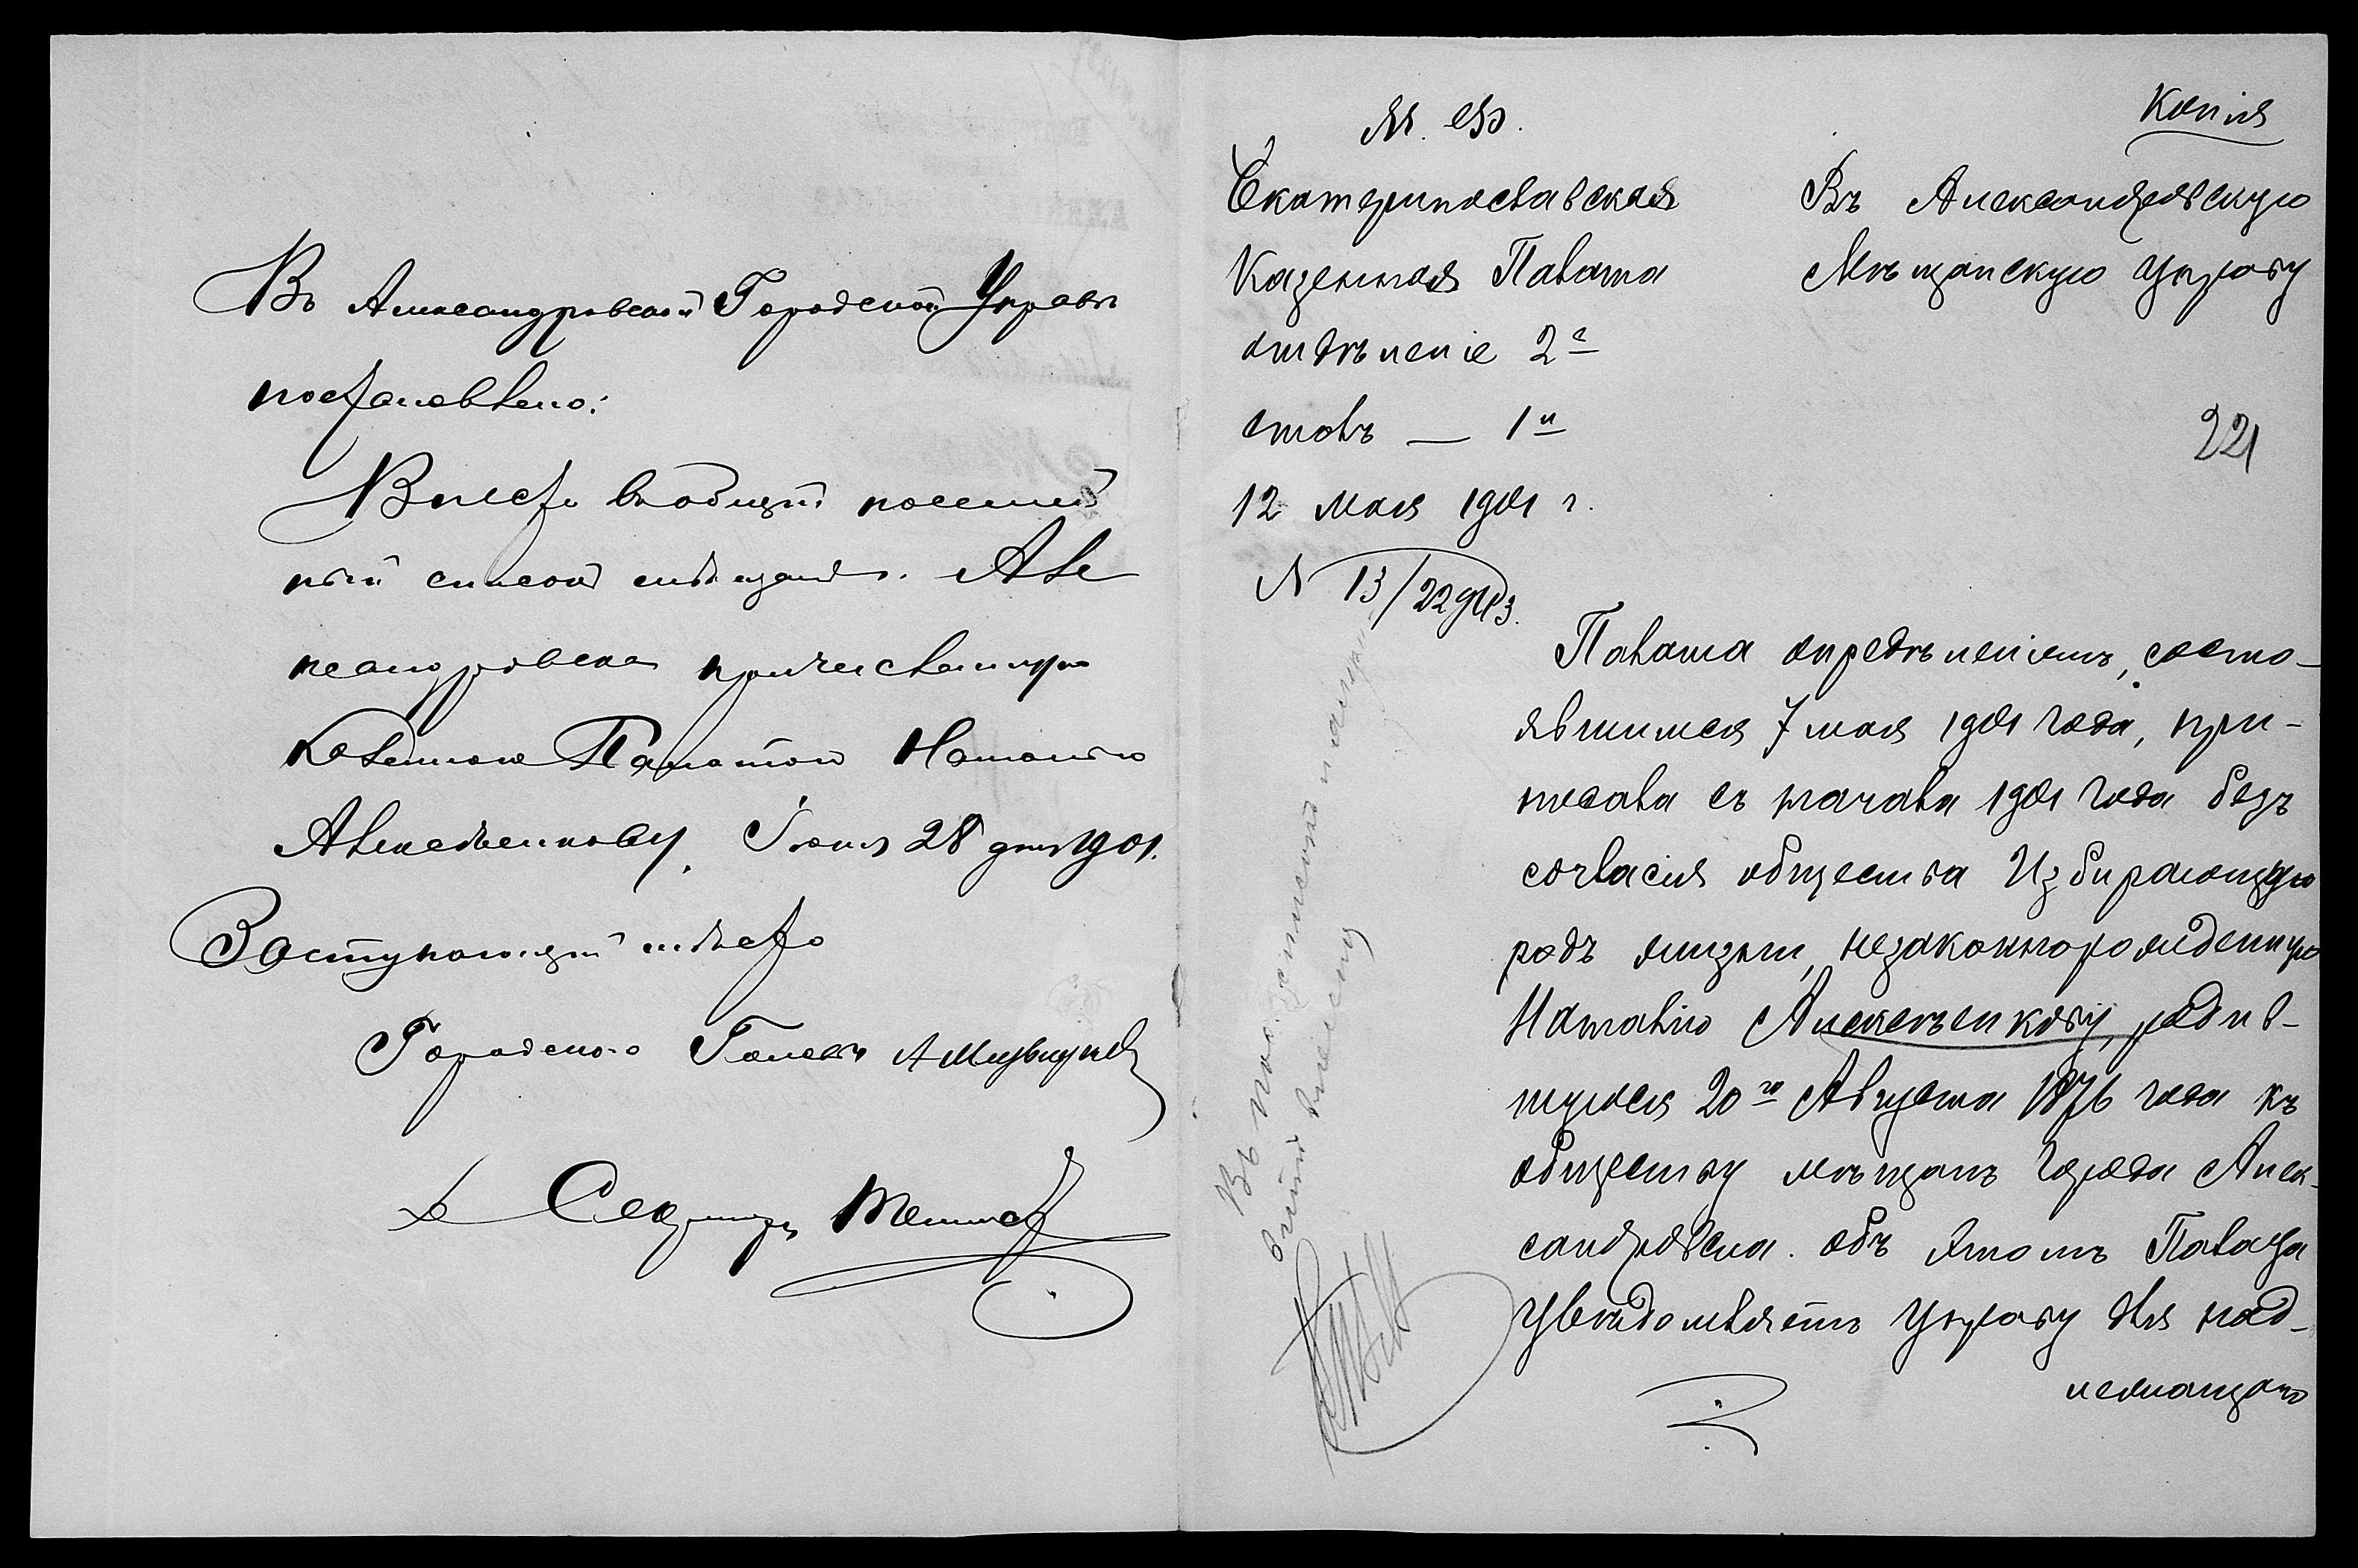 Въ Александровской Городской Управѣ
постановлено:
Внести въ общій посемей
ный списокъ мѣщанъ г. Але
ксандровска причисленную
Казенною Палатою Наталію
Алексѣенкову. Іюня 28 дня 1901.
Заступающій мѣсто
Городского Головы
Секретарь
М. Ф.
Екатеринославская
Казенная Палата
отдѣленіе 2е
столъ — 1й
12 мая 1901 г.
N 13/22913.
Копія
Въ Александровскую
Мѣщанскую Управу
221
Палата опредѣленіемъ, состо-
явшимся 7 мая 1901 года, при-
писала съ начала 1901 года безъ
согласія общества Избирающую
родъ жизни, незаконнорожденную
Наталію Алексѣенкову, родив-
шуюся 20го Августа 1876 года къ
обществу мѣщанъ города Алек-
сандровска. объ этомъ Палата
увѣдомляетъ Управу для над-
лежащаго
Въ списокъ